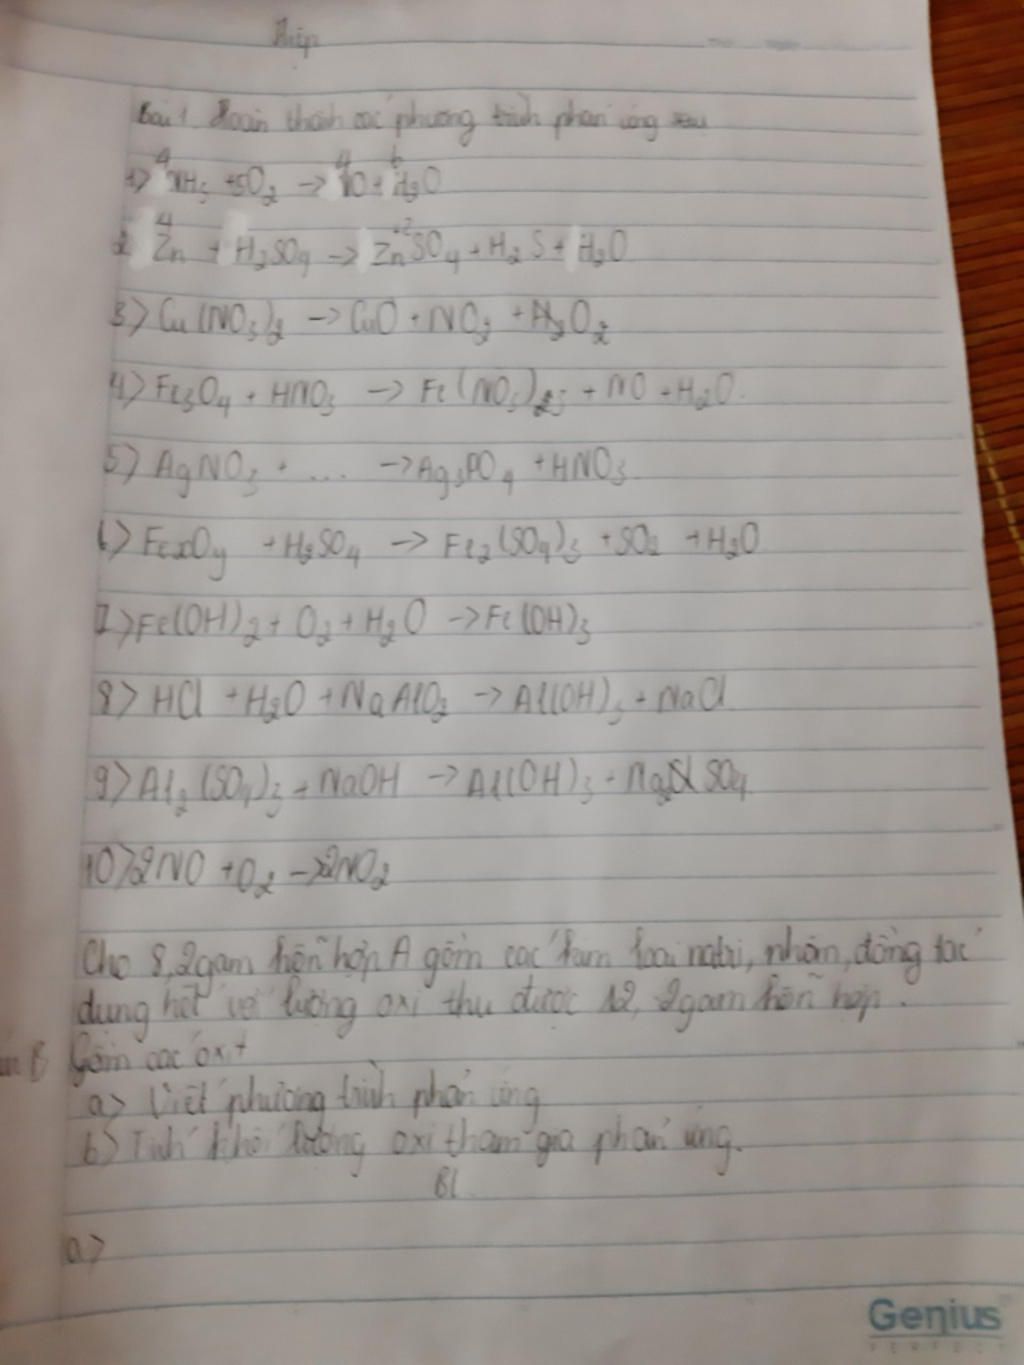 Hiệp
Bài 1. Hoàn thành các phương trình phản ứng sau
1> 4NH3 + 5O2 -> 4NO + 6H2O
2 4Zn + H2SO4 -> Zn+2SO4 + H2S + H2O
3> Cu(NO3)2 -> CuO + NO2 + O2
4> Fe3O4 + HNO3 -> Fe(NO3)3 + NO + H2O.
5> AgNO3 + .... -> Ag3PO4 + HNO3
6> FexOy + H2SO4 -> Fe2(SO4)3 + SO2 + H2O
7> Fe(OH)2 + O2 + H2O -> Fe(OH)3
8> HCl + H2O + NaAlO2 -> Al(OH)3 + NaCl
9> Al2(SO4)3 + NaOH -> Al(OH)3 + Na2SO4
10> 2NO + O2 -> 2NO2
Cho 8,2gam hỗn hợp A gồm các kim loại natri, nhôm, đồng tác
dụng hết với lượng oxi thu được 12,2gam hỗn hợp.
B Gồm các oxit
a> Viết phương trình phản ứng
b> Tính khối lượng oxi tham gia phản ứng.
Bl
a>
Genius
PERFECT